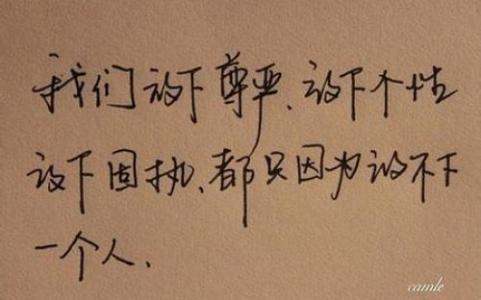 我们放下尊严、放下个性
放下固执、都只因为放不下
一个人.
camle